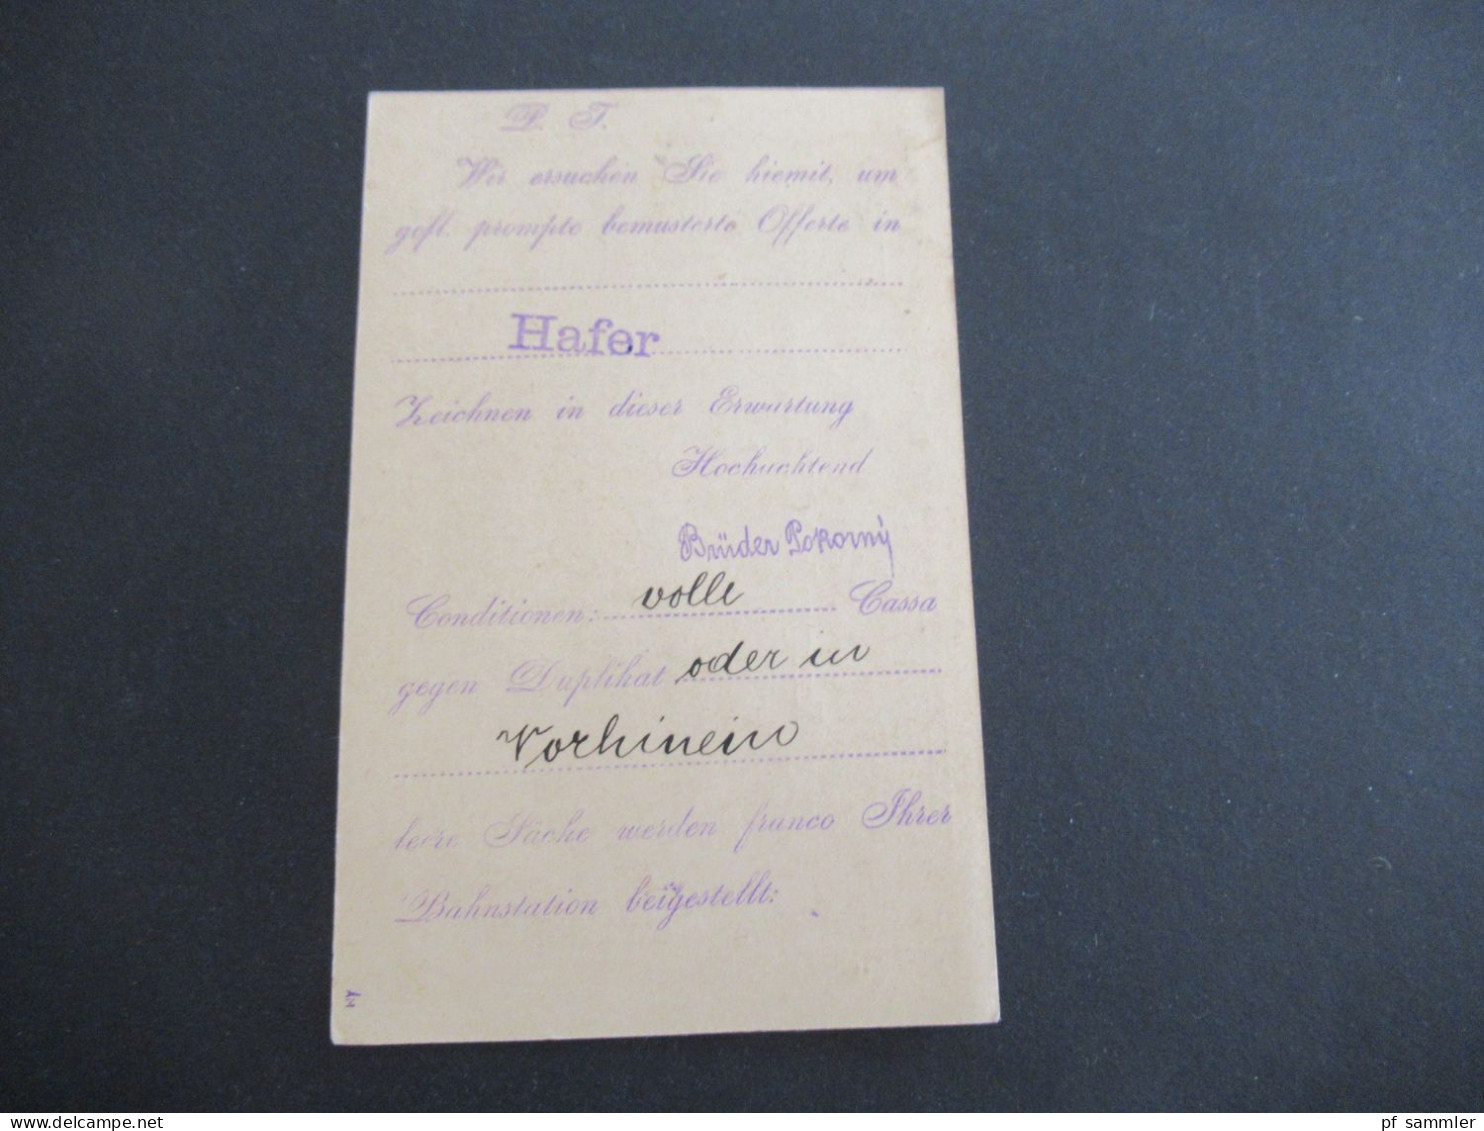 P. T.
Wir ersuchen Sie hiemit, um
gefl. prompte bemusterte Offerte in
Hafer
Zeichnen in dieser Erwartung
Hochachtend
Brüder Pokorný
Conditionen: volle Cassa
gegen Duplikat oder in
Vorhinein
leere Säcke werden franco Ihrer
Bahnstation beigestellt:
delcampe.net
pf sammler